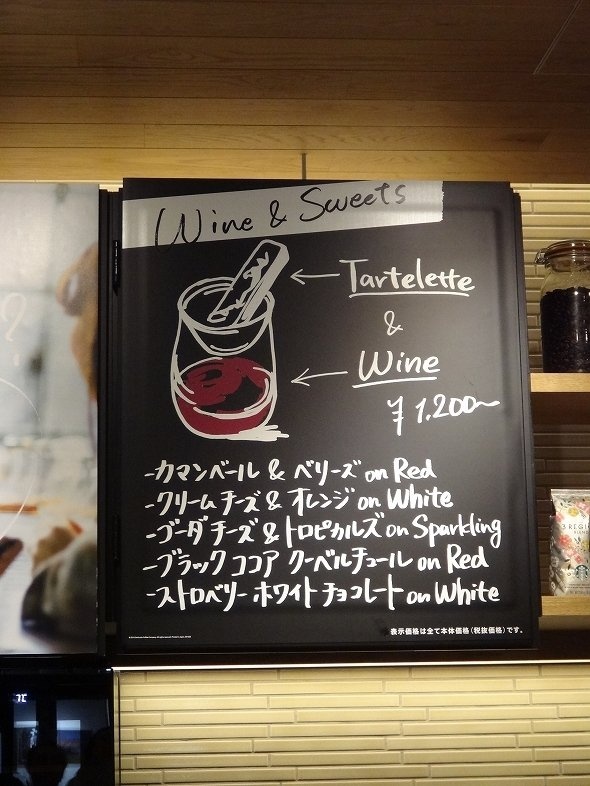 Wine & Sweets
Tartelette
&
Wine
¥1.200〜
-カマンベール & ベリーズ on Red
-クリームチーズ & オレンジ on White
-ゴーダチーズ & トロピカルズ on Sparkling
-ブラックココア クーベルチュール on Red
-ストロベリー ホワイトチョコレート on White
表示価格は全て本体価格(税抜価格)です。